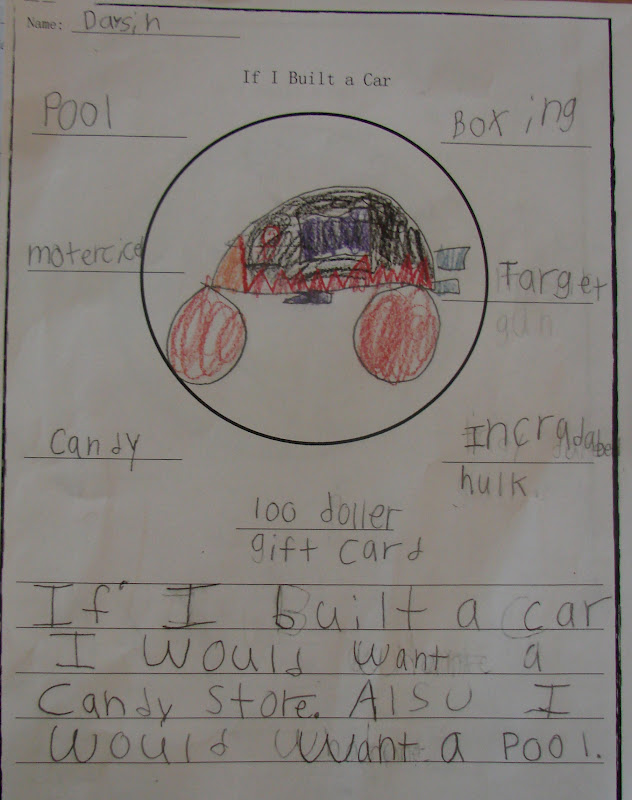 Name: Darsin
If I Built a Car
Pool
Boxing
motercicl
Target
gun
Candy
Incradabel
hulk.
100 doller
gift card
If I built a car
I would want a
Candy Store. Also I
would want a pool.